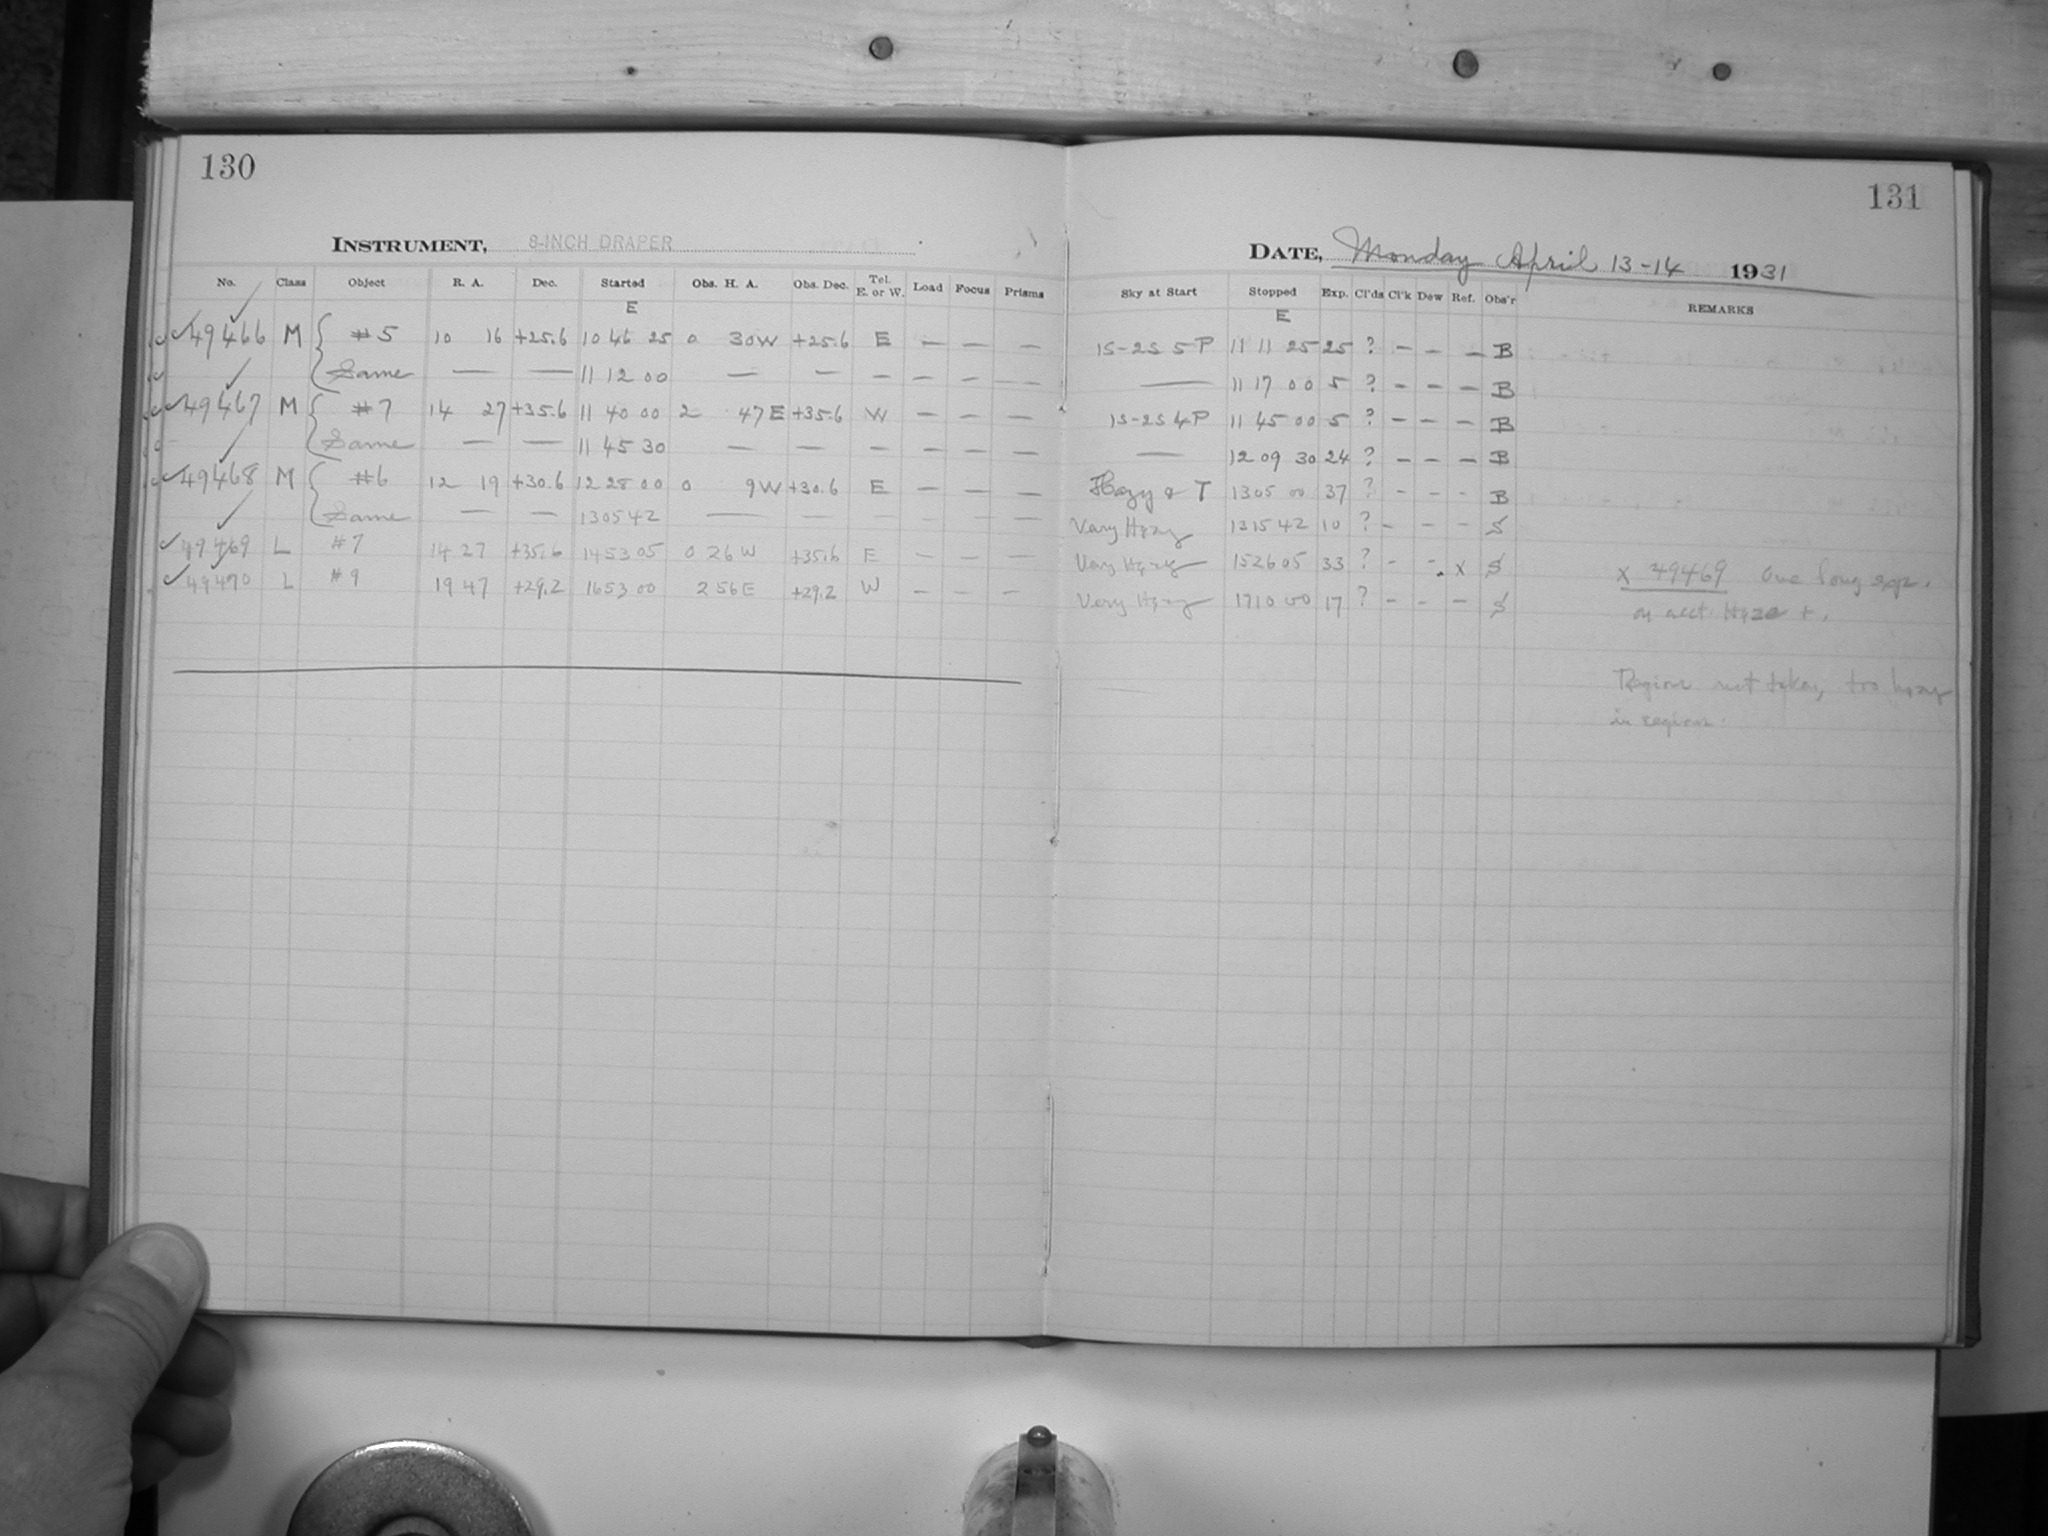 130
INSTRUMENT, 8-INCH DRAPER
No. Class Object R. A. Dec. Started Obs. H. A. Obs. Dec. Tel. E. or W. Load Focus Prisms
E
49466 M #5 10 16 +25.6 10 46 25 0 30W +25.6 E — — —
Same — — 11 12 00 — — — — — —
49467 M #7 14 27 +35.6 11 40 00 2 47E +35.6 W — — —
Same — — 11 45 30 — — — — — —
49468 M #6 12 19 +30.6 12 28 00 0 9W +30.6 E — — —
Same — — 13 05 42 — — — — — —
49469 L #7 14 27 +35.6 14 53 05 0 26W +35.6 E — — —
49470 L #9 19 47 +29.2 16 53 00 2 56E +29.2 W — — —
131
DATE, Monday April 13-14 1931
Sky at Start Stopped Exp. Cl'ds Cl'k Dew Ref. Obs'r REMARKS
E
1S-2S 5P 11 11 25 25 ? — — — B
— 11 17 00 5 ? — — — B
1S-2S 4P 11 45 00 5 ? — — — B
— 12 09 30 24 ? — — — B
Hazy & T 13 05 00 37 ? - - - B
Very Hazy 13 15 42 10 ? - - - S
Very Hazy 15 26 05 33 ? - - x S
Very Hazy 17 10 00 17 ? - - - S
x 49469 One long exp.
on acct. Haze +.
Region not taken, too hazy
in region.